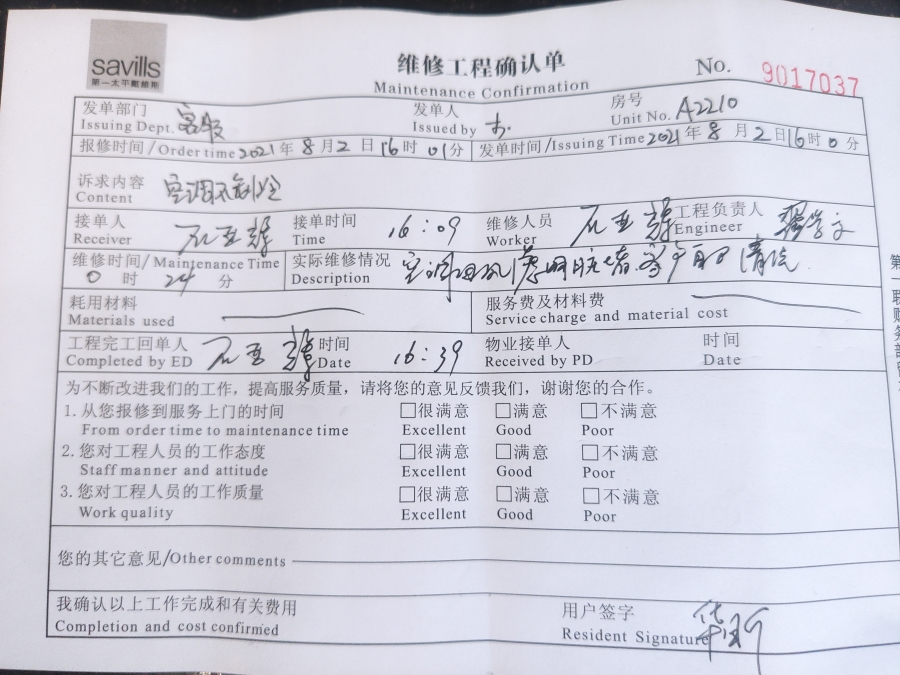 savills
第一太平戴维斯
维修工程确认单
Maintenance Confirmation
No. 9017037
发单部门 客服 发单人 房号
Issuing Dept. Issued by Unit No. A2210
报修时间/Order time 2021年8月2日16时01分 发单时间/Issuing Time 2021年8月2日16时0分
诉求内容 空调不制冷
Content
接单人 接单时间 16:09 维修人员 工程负责人
Receiver Time Worker Engineer
维修时间/Maintenance Time 实际维修情况 空调回风
0时24分 Description 清洗
耗用材料 服务费及材料费
Materials used Service charge and material cost
工程完工回单人 时间 16:39 物业接单人 时间
Completed by ED Date Received by PD Date
为不断改进我们的工作，提高服务质量，请将您的意见反馈我们，谢谢您的合作。
1.从您报修到服务上门的时间 □很满意 □满意 □不满意
From order time to maintenance time Excellent Good Poor
2.您对工程人员的工作态度 □很满意 □满意 □不满意
Staff manner and attitude Excellent Good Poor
3.您对工程人员的工作质量 □很满意 □满意 □不满意
Work quality Excellent Good Poor
您的其它意见/Other comments
我确认以上工作完成和有关费用 用户签字
Completion and cost confirmed Resident Signature